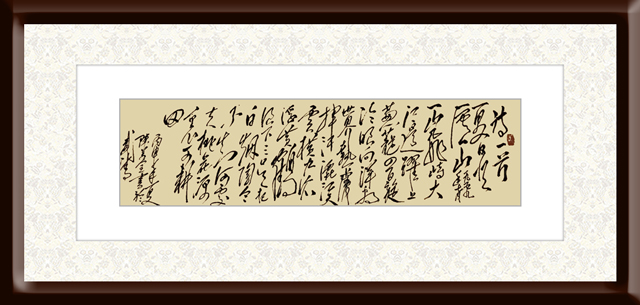 诗一首
夏日登
庐山
一山飞峙大
江边跃上
葱茏四百旋
冷眼向洋看
世界热肤
挥汗洒江天
云横九派
浮黄鹤
浪下三吴起
白烟陶令
不知何处
去桃花源
里可耕
田